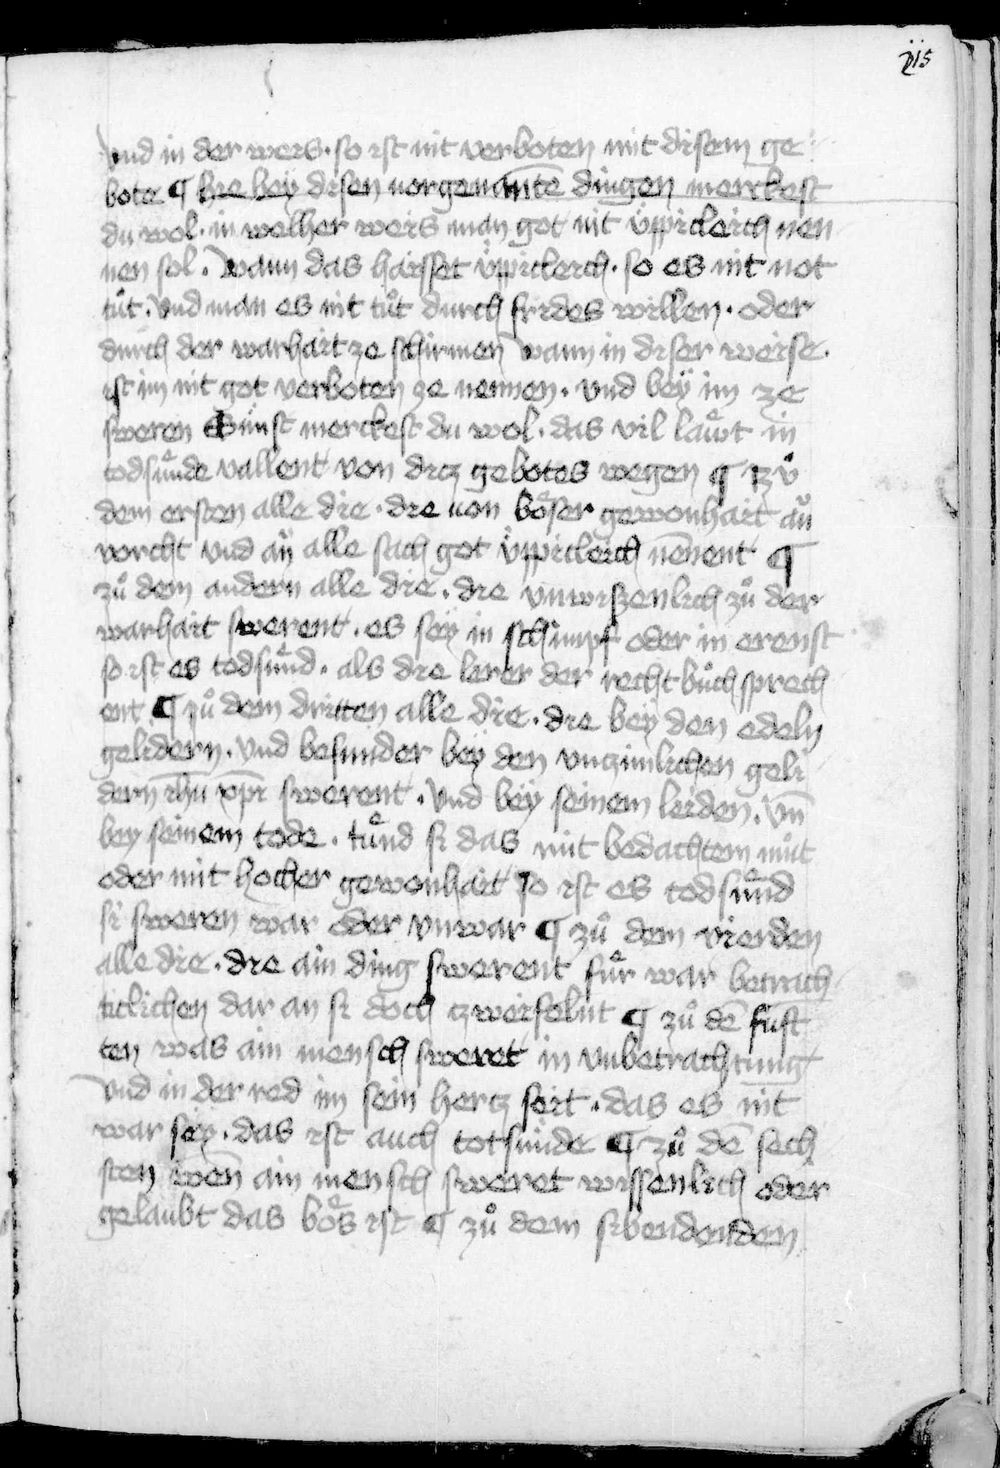 vnd in der weis · so ist nit verboten mit disem ge
bote ¶ hie bey disen uorgenante̅ dingen merckest
du wol · in welher weis man got nit v̈ppicleich nen
nen sol · Wann das haisset v̈ppicleich · so es nit not
tuͦt · vnd man es nit tuͦt durch frides willen · oder
durch der warhait ze schirmen Wann in diser weise ·
ist im nit got verboten ze nennen · vnd beÿ im ze
sweren Sünst merckest du wol · das vil laͤwt in
todsuͤnde vallent von ditz gebotes wegen ¶ Tzuͦ
dem ersten alle die · die uon boͤser gewonhait an̈
vorcht vnd an̈ alle sach got v̈ppicleich ne̅nent ¶
zuͦ dem andern alle die · die vnwiszenlich zuͦ der
warhait swerent · es seÿ in schimpf oder in erenst
so ist es todsuͤnd · als die lerer der recht buͦch sprech
ent ¶ zuͦ dem dritten alle die · die beÿ den edeln
gelidern · vnd besunder beÿ den vnzimlichen geli
dern ih̅u xp̅i swerent · vnd beÿ seinem leiden · vn̅
bey seinem tode · tuͤnd si das mit bedachtem muͦt
oder mit hocher gewonhait so ist es todsuͤnd
si sweren war oder vnwar ¶ zuͦ dem vierden
alle die · die ain ding swerent fuͤr war betrach
ticlichen dar an si doch tzweifelnt ¶ zuͦ de̅ fu̅f
ten was ain mensch sweret in vnbetrachtung
vnd in der red im sein hertz seit · das es nit
war seÿ · das ist auch totsünde ¶ zuͦ de̅ sech
sten we̅n ain mensch sweret wissenlich oder
gelaubt das boͤs ist ¶ zuͦ dem sibendenden